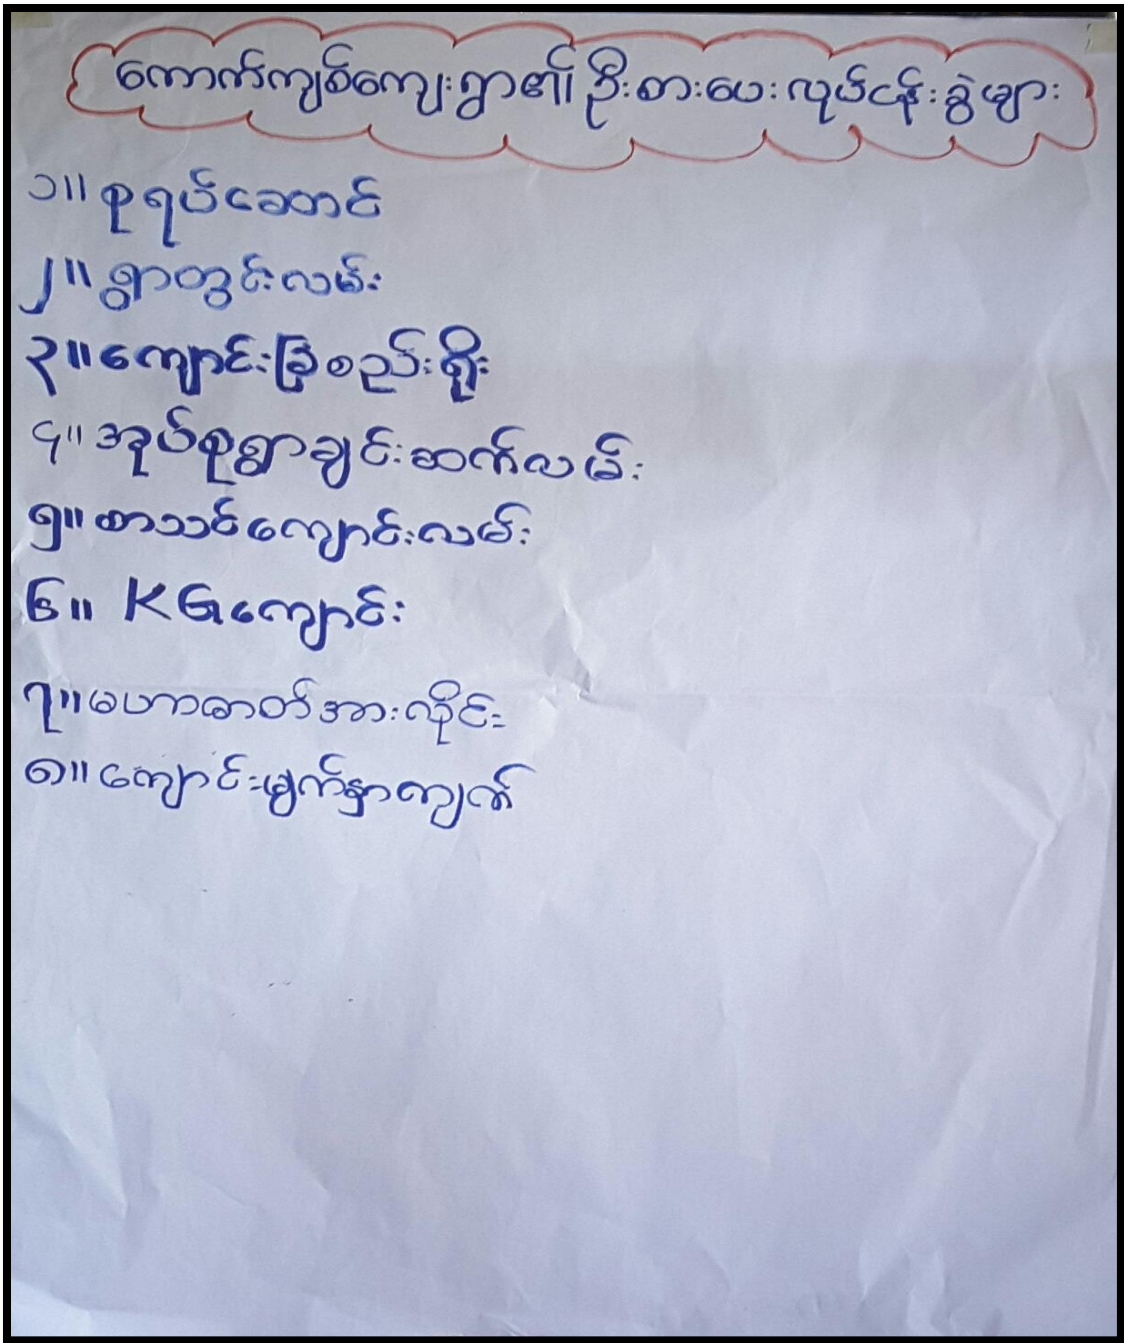 ကောက်ကျစ်ကျေးရွာ၏ ဦးစားပေးလုပ်ငန်းခွဲများ
၁။ စုရပ်ဆောင်
၂။ ရွာတွင်းလမ်း
၃။ ကျောင်းခြံစည်းရိုး
၄။ အုပ်စုရွာချင်းဆက်လမ်း
၅။ စာသင်ကျောင်းလမ်း
၆။ KGကျောင်း
၇။ မဟာဓာတ်အားလိုင်း
၈။ ကျောင်းမျက်နှာကျက်